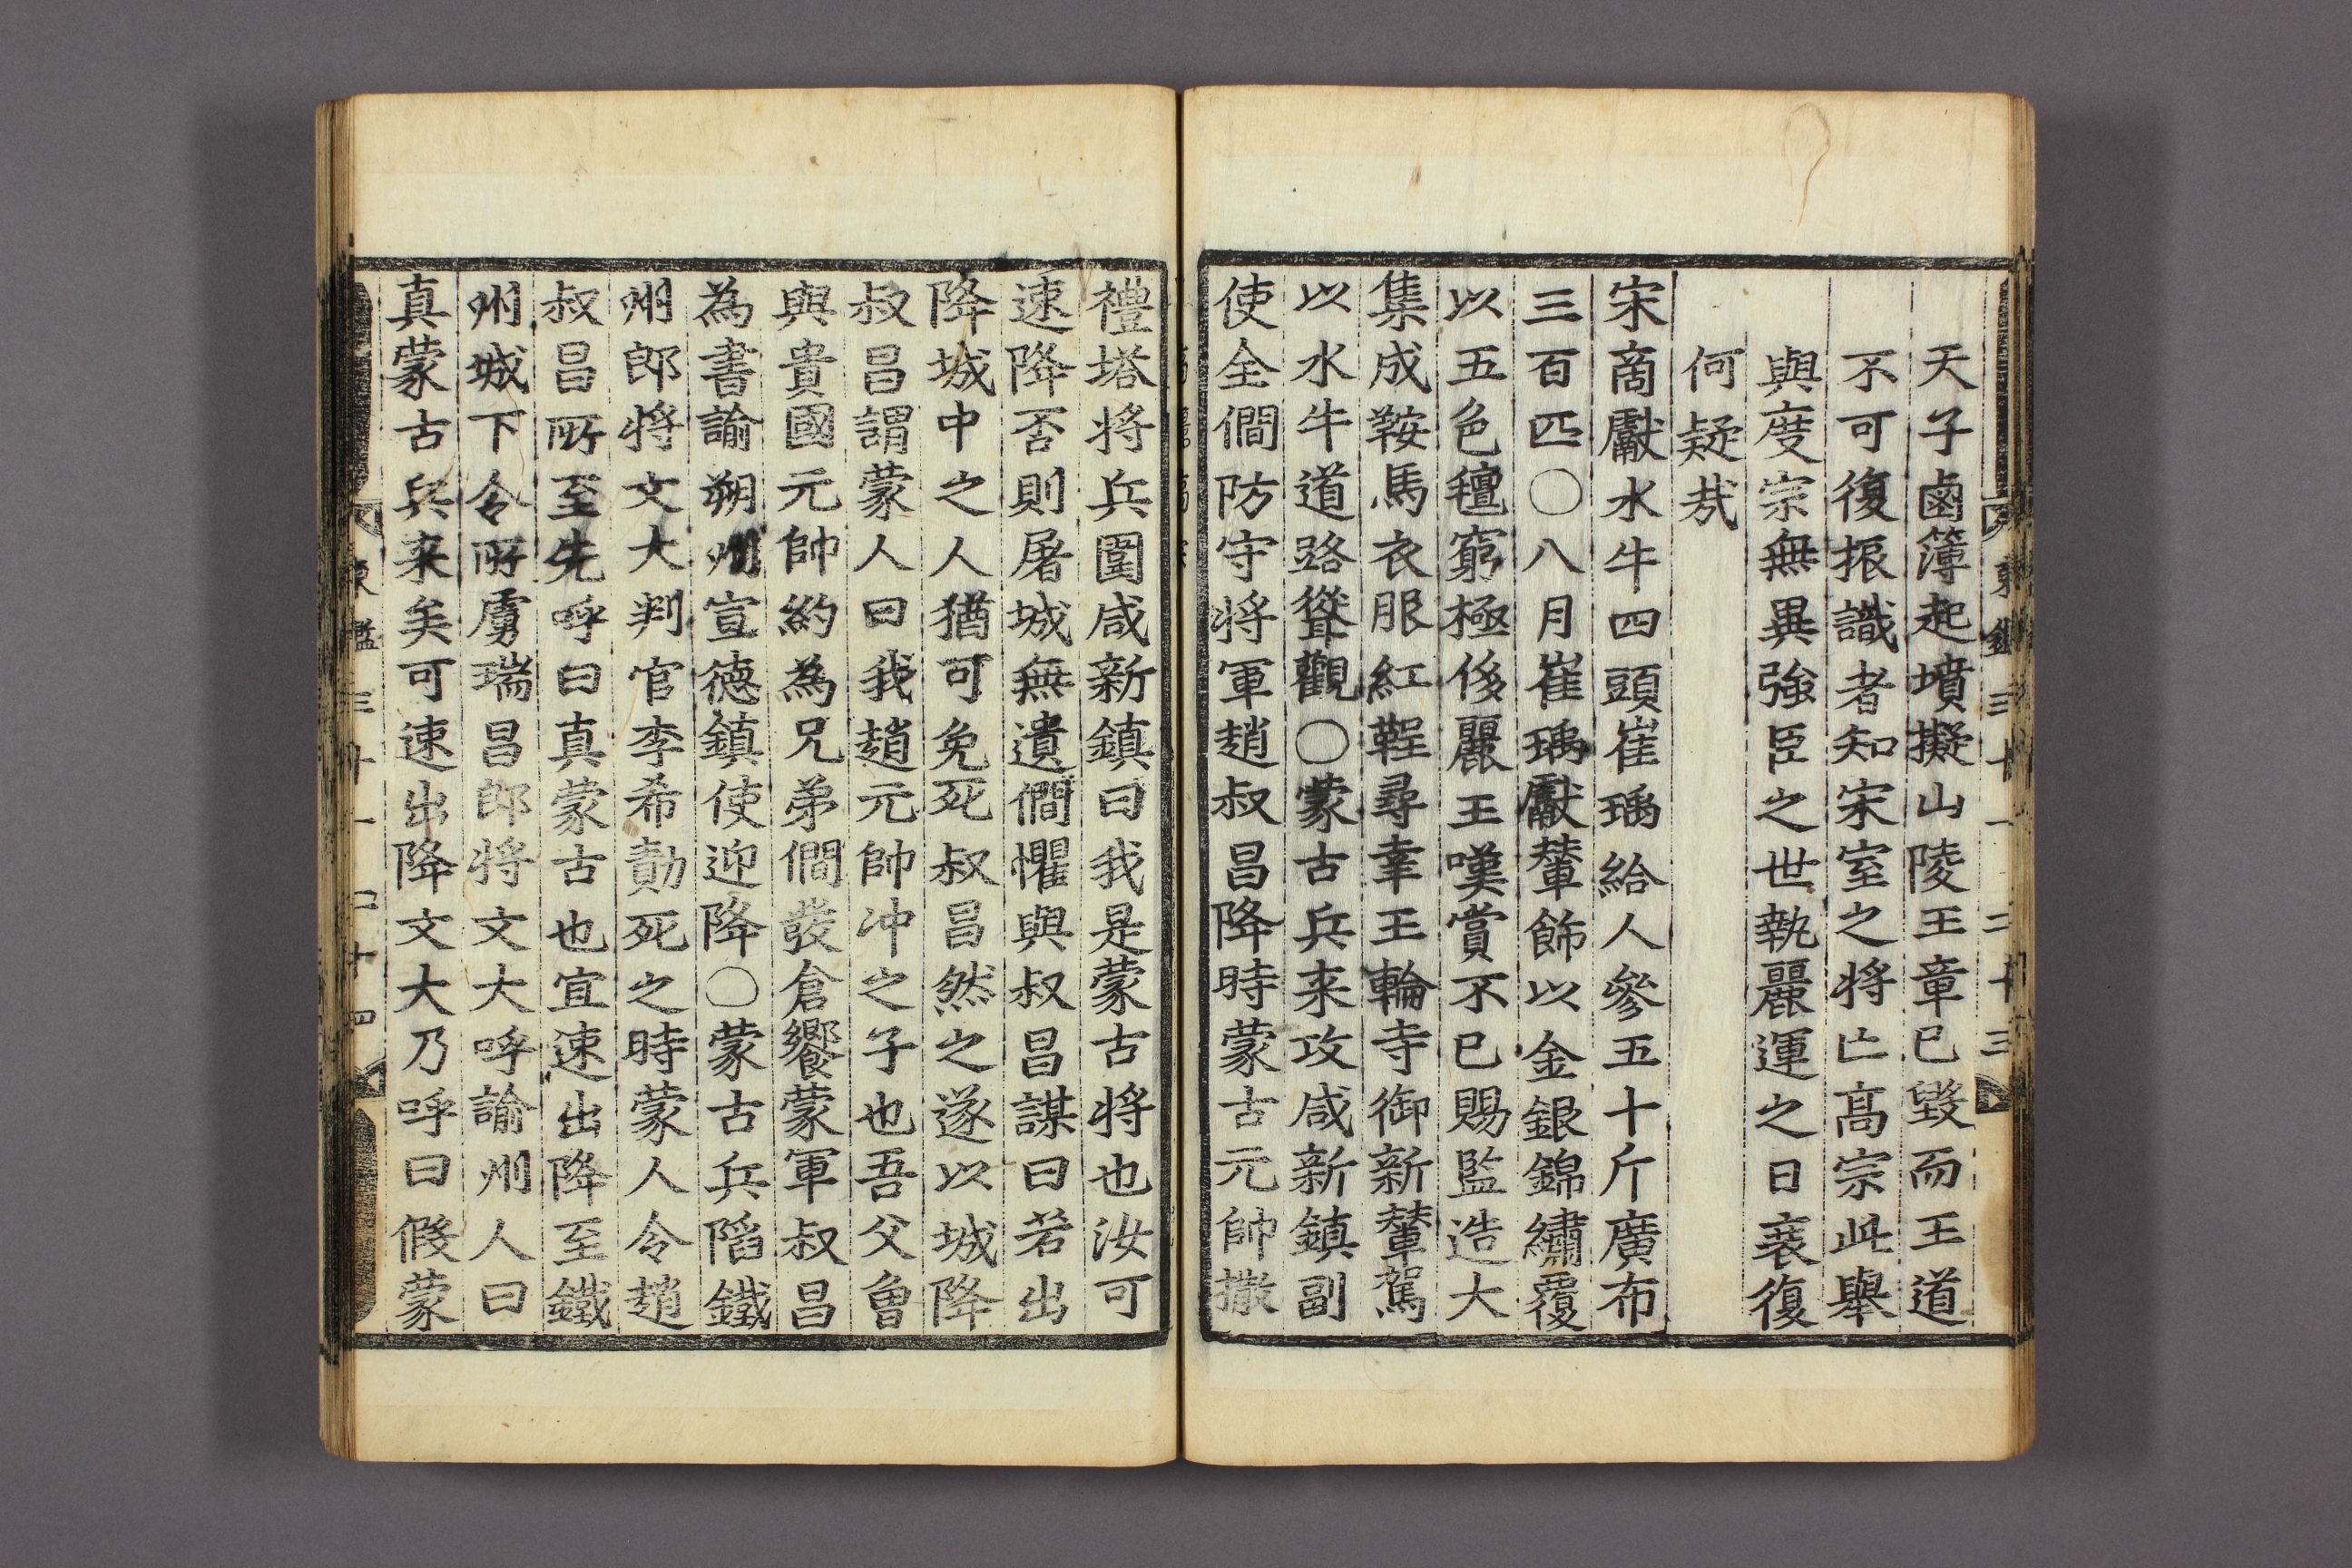 天子鹵簿起墳擬山陵王章已毀而王道
不可復振識者知宋室之將亡高宗此舉
與度宗無異強臣之世執麗運之日衰復
何疑㢤
宋商獻水牛四頭崔瑀給人參五十斤廣布
三百匹〇八月崔瑀獻輦飾以金銀錦繡覆
以五色氊窮極侈麗王嘆賞不已賜監造大
集成鞍馬衣服紅鞓尋幸王輪寺御新輦駕
以水牛道路聳觀〇蒙古兵来攻咸新鎮副
使全僩防守将軍趙叔昌降時蒙古元帥撒
禮塔将兵圍咸新鎮曰我是蒙古将也汝可
速降否則屠城無遺僩懼與叔昌謀曰若出
降城中之人猶可免死叔昌然之遂以城降
叔昌謂蒙人曰我趙元帥冲之子也吾父曾
與貴國元帥約為兄弟僩發倉饗蒙軍叔昌
為書諭朔州宣德鎮使迎降〇蒙古兵陷鐵
州郎将文大判官李希勣死之時蒙人令趙
叔昌所至先呼曰真蒙古也宜速出降至鐵
州城下令所虜瑞昌郎将文大呼諭州人曰
真蒙古兵来矣可速出降文大乃呼曰假蒙